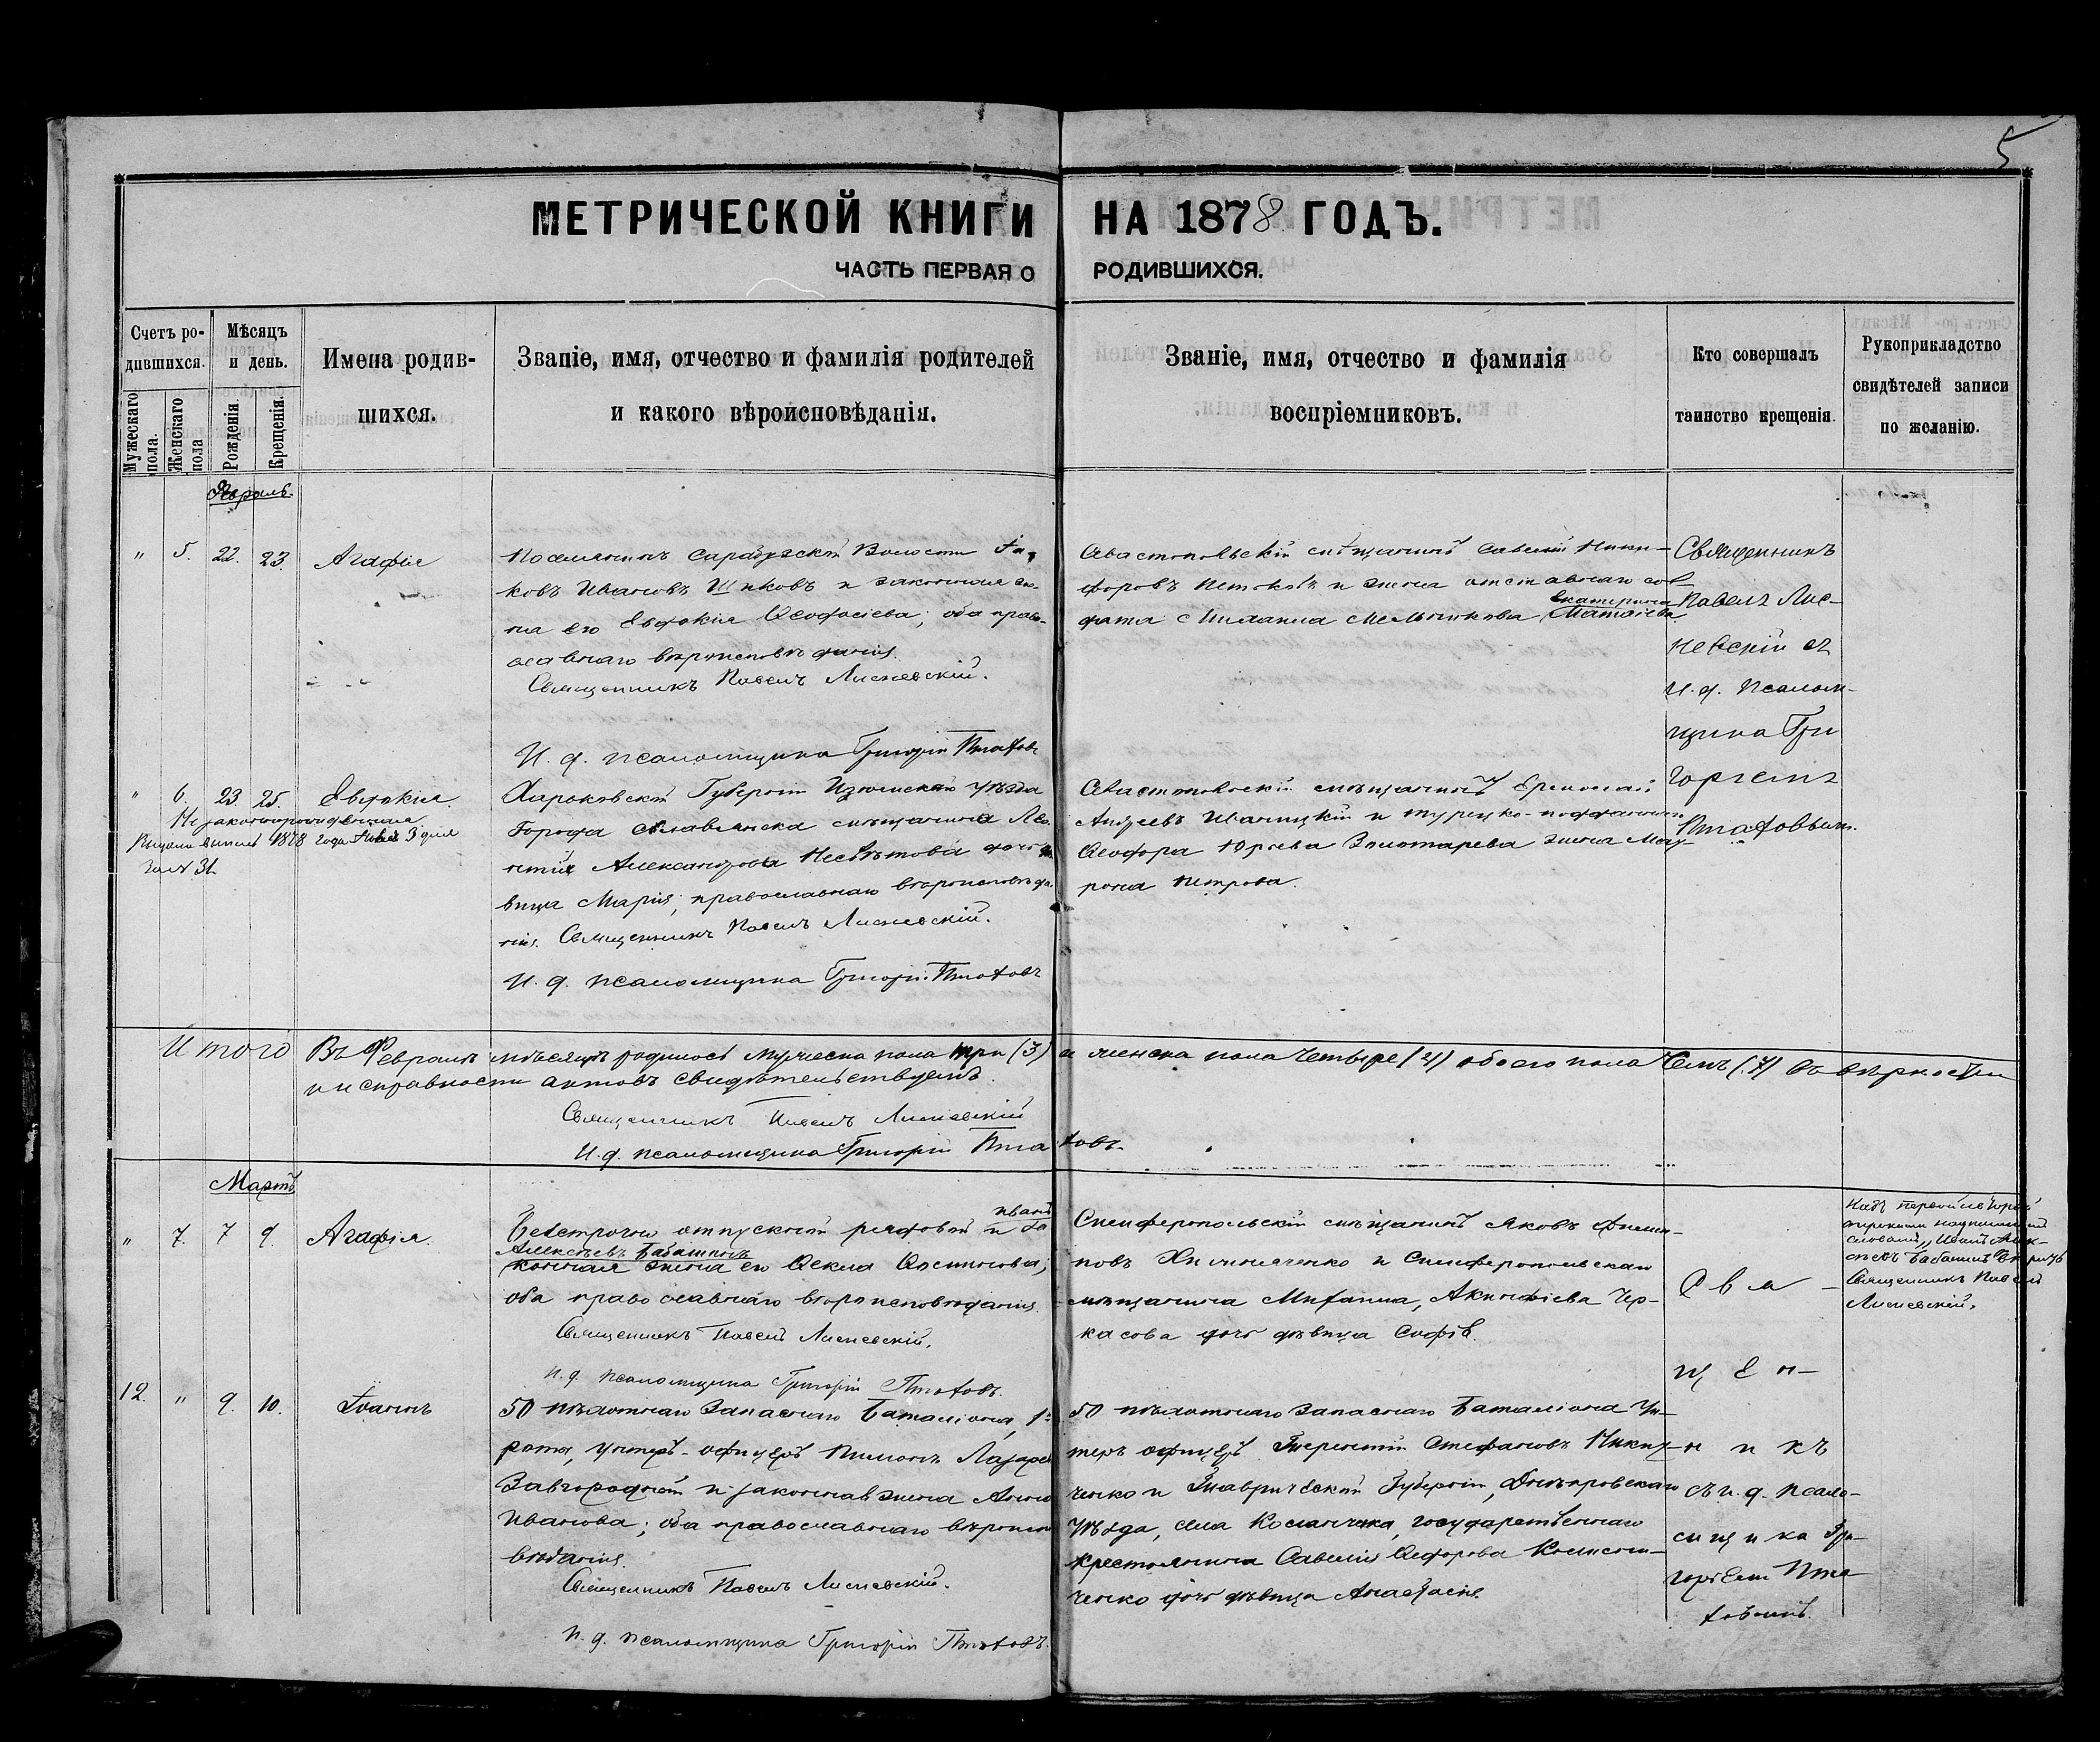 5
МЕТРИЧЕСКОЙ КНИГИ НА 1878 ГОДЪ.
ЧАСТЬ ПЕРВАЯ О РОДИВШИХСЯ.
Счетъ ро-
дившихся.
Мужескаго пола.
Женскаго пола
Мѣсяцъ
и день.
Рожденія.
Крещенія.
Имена родив-
шихся.
Званіе, имя, отчество и фамилія родителей
и какого вѣроисповѣданія.
Званіе, имя, отчество и фамилія
воспріемниковъ.
Кто совершалъ
таинство крещенія.
Рукоприкладство
свидѣтелей записи
по желанію.
Февраль.
" 5. 22. 23. Агафія
Поселянинъ Сарабузской Волости Іа-
ковъ Ивановъ и законная же-
на его Евдокія Ѳеодосіева; оба право-
славнаго вѣроисповѣданія.
Священникъ Павелъ Лисневскій.
И. д. псаломщика Григорій Птаховъ
Севастопольскій мѣщанинъ Савелій Ники-
форовъ и жена отставнаго сол-
дата Михаила Мельникова Екатерина
Матвіева
Священникъ
Павелъ Лис-
невскій съ
и. д. псалом-
щика Гри
горіемъ
Птаховымъ.
" 6. 23. 25. Евдокія.
Незаконнорожденная
Выдана выпись 1878 года 3 дня
за № 31.
Харьковской Губерніи Изюмскаго уѣзда
Города Славянска мѣщанина Лео-
нтія Александрова дочь дѣ-
вица Марія; православнаго вѣроисповѣда-
нія. Священникъ Павелъ Лисневскій.
И. д. псаломщика Григорій Птаховъ
Севастопольскій мѣщанинъ
Андреевъ Иваницкій и турецко-подданнаго
Ѳеодора Юрьева Золотарева жена Мат-
рона Петрова.
Итого Въ Февралѣ мѣсяцѣ родилось мужеска пола три (3) и женска пола четыре (4) обоего пола семь (7) въ вѣрности
и исправности актовъ свидѣтельствуемъ.
Священникъ Павелъ Лисневскій
И. д. псаломщика Григорій Птаховъ.
Мартъ
" 7. 7 9. Агафія.
Иванъ
Безсрочно отпускной рядовой и за
Алексѣевъ Бабашинъ
конная жена его Ѳекла
оба православнаго вѣроисповѣданія.
Священникъ Павелъ Лисневскій.
И. д. псаломщика Григорій Птаховъ.
Симферопольскій мѣщанинъ Яковъ
новъ и Симферопольскаго
мѣщанина Михаила, Акинфіева Чер-
касова дочь дѣвица Софія.
Свя-
щен-
никъ
съ и. д. псало-
мщика Гри-
горіемъ Пта-
ховымъ.
Надъ первой и второй
строками надписаннымъ
словамъ "Иванъ Алек-
сѣевъ Бабашинъ" вѣрить
Священникъ Павелъ
Лисневскій.
12. " 9. 10. Іоаннъ
50 пѣхотнаго Запаснаго Баталіона, 1-
роты, унтеръ-офицеръ Пименъ Лазаревъ
Завгородній и законная жена Анна
Иванова; оба православнаго вѣроиспо
вѣданія.
Священникъ Павелъ Лисневскій.
И. д. псаломщика Григорій Птаховъ.
50 пѣхотнаго Запаснаго Баталіона Ун-
теръ офицеръ Терентій Стефановъ
ченко и Таврической Губерніи, Днѣпровскаго
Уѣзда, села государственнаго
крестьянина Савелія Ѳедорова
ченко дочь дѣвица Анастасія.